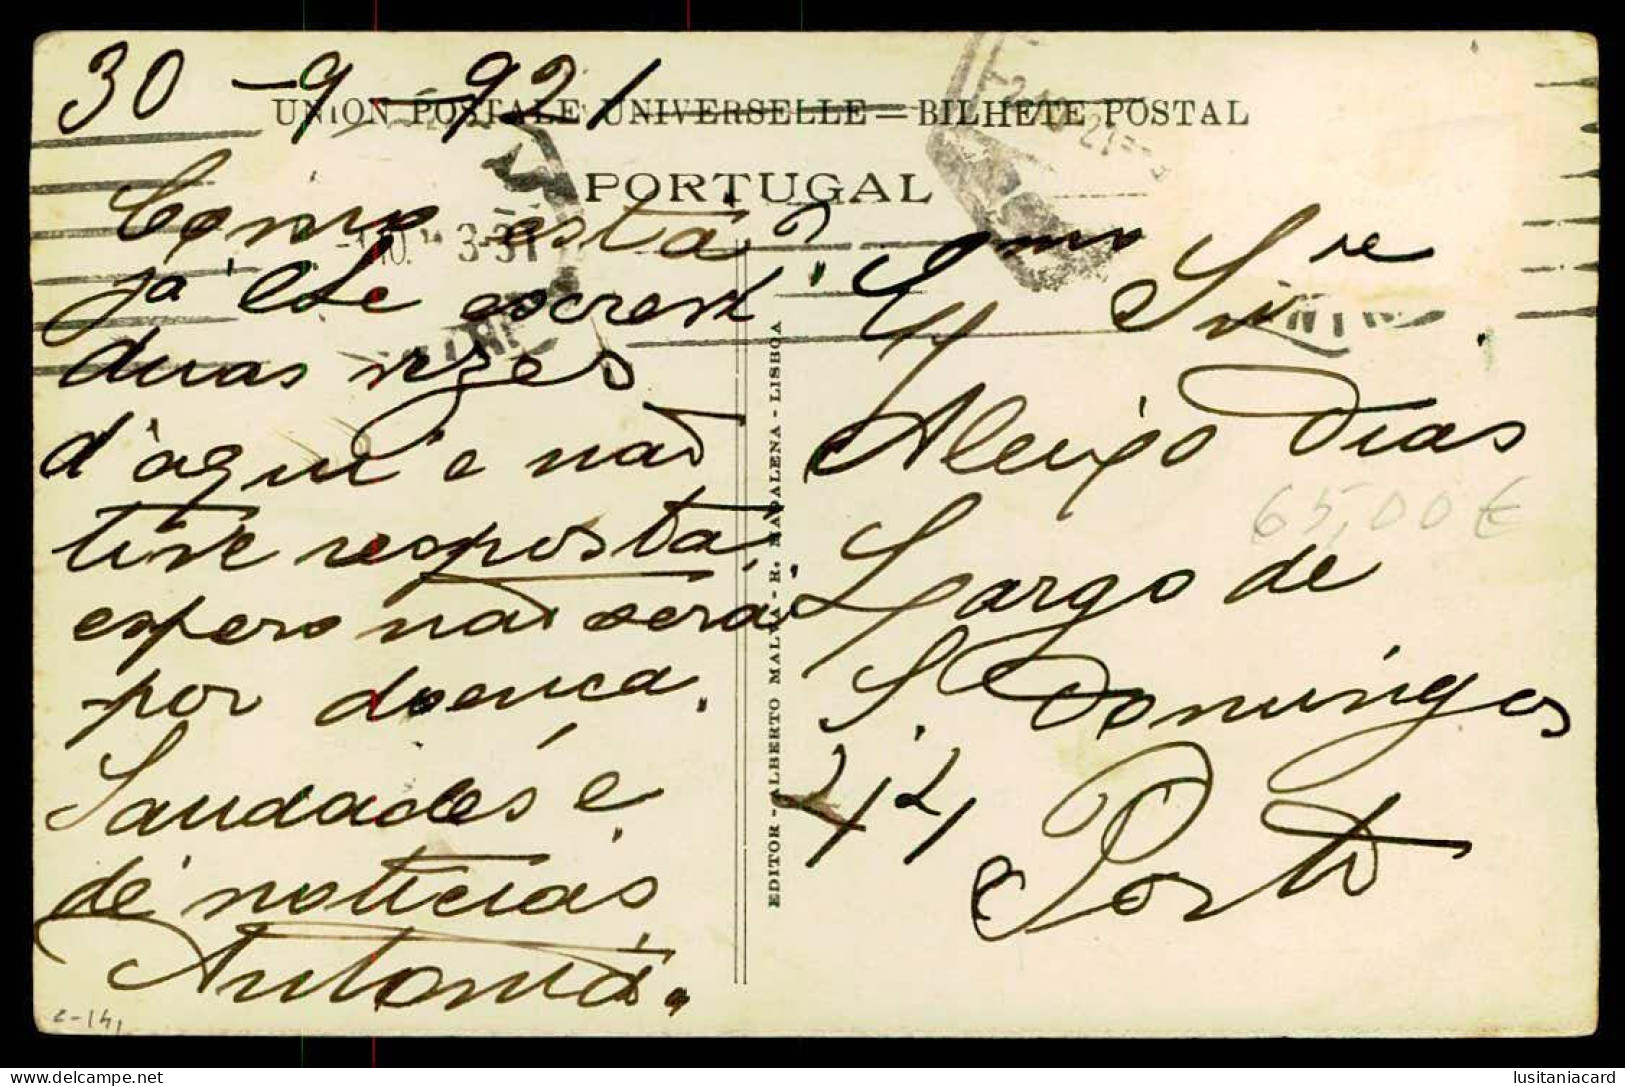 30-9-921
UNION POSTALE UNIVERSELLE = BILHETE POSTAL
PORTUGAL
Como está?
já lhe escrevi
duas vezes
d'aqui e não
tive resposta,
espero não será
por doença.
Saudades e
dê noticias,
Antonia.
Exmo Snre
Aleixo Dias
Largo de
S. Domingos
44
Porto
65,00€
EDITOR - ALBERTO MALVA - R. MADALENA - LISBOA
2-141
lusitaniacard